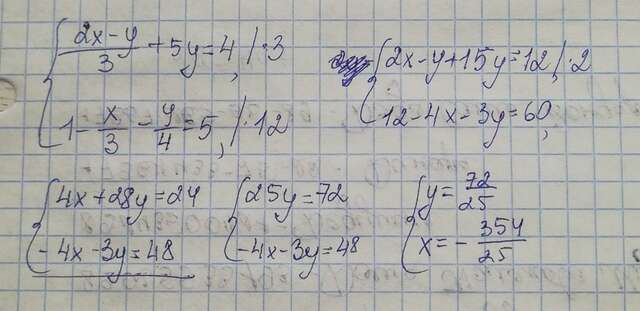 { (2x-y)/3 + 5y = 4, | · 3
{ 1 - x/3 - y/4 = 5, | · 12
{ 2x-y+15y=12, | · 2
{ 12-4x-3y=60,
{ 4x+28y=24
{ -4x-3y=48
{ 25y=72
{ -4x-3y=48
{ y = 72/25
{ x = - 354/25